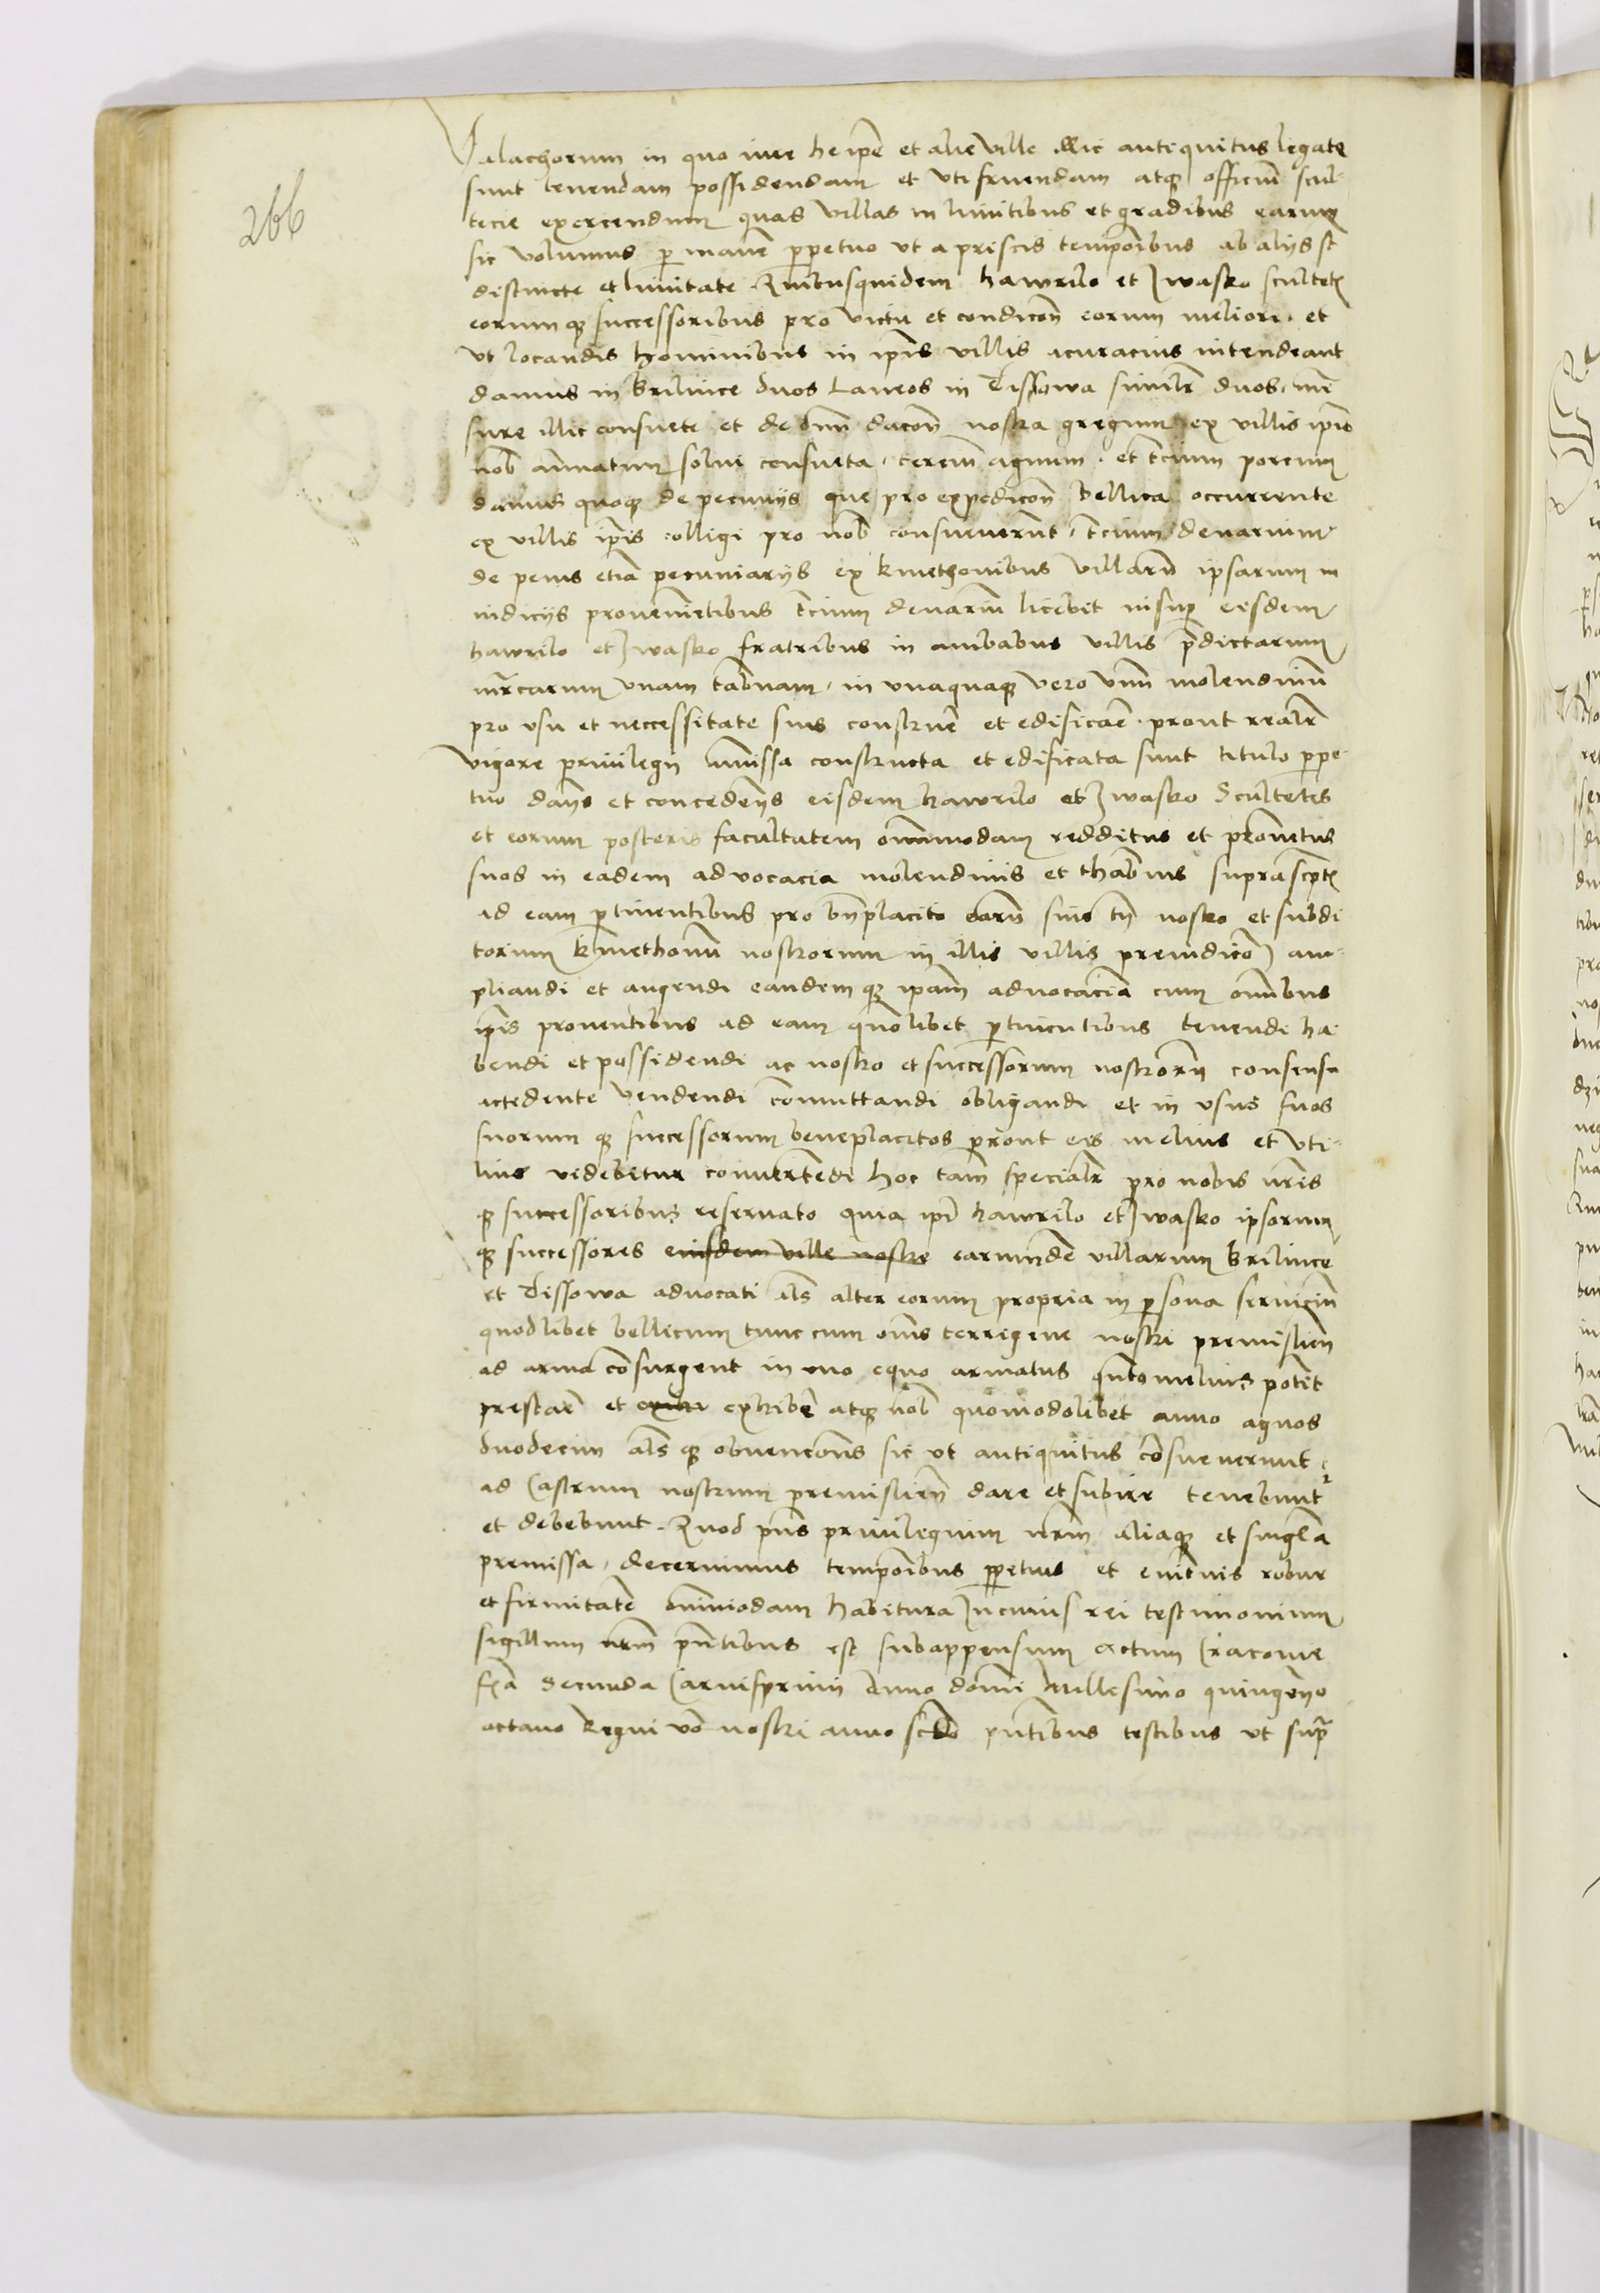 266
Valachorum in quo iure he ipē et alie ville illic antiquitus legate
sunt tenendam possidendam et vti fruendam atq officiū scul-
tecie exercendum quas villas in limitibus et gradibus earum
sic volumus p manē ppetuo vt a priscis tempoībus ab alijs st
distincte et limitate Quibusquidem hawrilo et Iwasko scultetis
eorum q successoribus pro victu et condicōn eorum meliori et
vt locandis hominibus in ipīs villis acuracius intendeant
damus in Brilince duos Laneos in Tissowa similr duos men
sure illic consuete et de oīnn dacōn nostra gregum ex villis ipīs
nob annatim solui consueta tercīu agnum et tcium porcum
damus quoq de pecunijs que pro expedicōn bellica occurrente
ex villis ipīs colligi pro nob consueuerūt tcium denarium
de penis etiā pecuniarijs ex kmethonibus villarū ipsarum in
iudicijs prouenīetibus tcium denariū licebit insup eisdem
hawrilo et Iwasko fratribus in ambabus villis pdictarum
mrcarum vnam tabnam in vnaquaq vero vnū molendinū
pro vsu et neccessitate suis construē et edificaē prout realr
vigore priuilegij amissa constructa et edificata sunt titulo ppe-
tuo dans et concedens eisdem hawrilo et Iwasko Scultetis
et eorum posteris facultatem omīmodam redditus et prouetus
suos in eadem aduocacia molendinis et thabnis suprascptis
ad eam ptinentibus pro bnplacito earū sine tn nostro et subdi
torum kmethonū nostrorum in illis villis preiudicō am-
pliandi et augendi eandem q ipam aduocaciā cum omībus
ipīs prouentibus ad eam quolibet ptinentibus tenendi ha-
bendi et possidendi ac nostro et successorum nostrorū consensu
accedente vendendi cōmuttandi obligandi et in vsus suos
suorum q successorum beneplacitos prout eis melius et vti-
lius videbitur conuertēdi hoc tam specialr pro nobis nris
q successoribus reseruato quia ipī hawrilo et Iwasko ipsorum
q successores eiusdem ville nostre earumdē villarum Brilince
et Tissowa aduocati als alter eorum propria in psona seruiciū
quodlibet bellicum tunc cum omīs terrigene nostri premislien
ad arma cōsurgent in vno equo armatus qnto melius potēit
prestaē et exhibē atq nob quomodolibet anno agnos
duodecim als q obuencōns sic vt antiquitus cōsueuerunt
ad Castrum nostrum premislien dare et subire tenebunt
et debebunt Quod pns priuilegium nrm aliaq et singla
premissa decernimus tempoībus ppetuis et euitnis robur
et firmitatē omīmodam habitura In cuius rei testimonium
sigillum nrm pntibus est subappensum Actum Cracouie
fia Secunda Carnispriuij Anno domī Millesimo quingeno
octauo Regni vō nostri anno scdo pntibus testibus vt supra